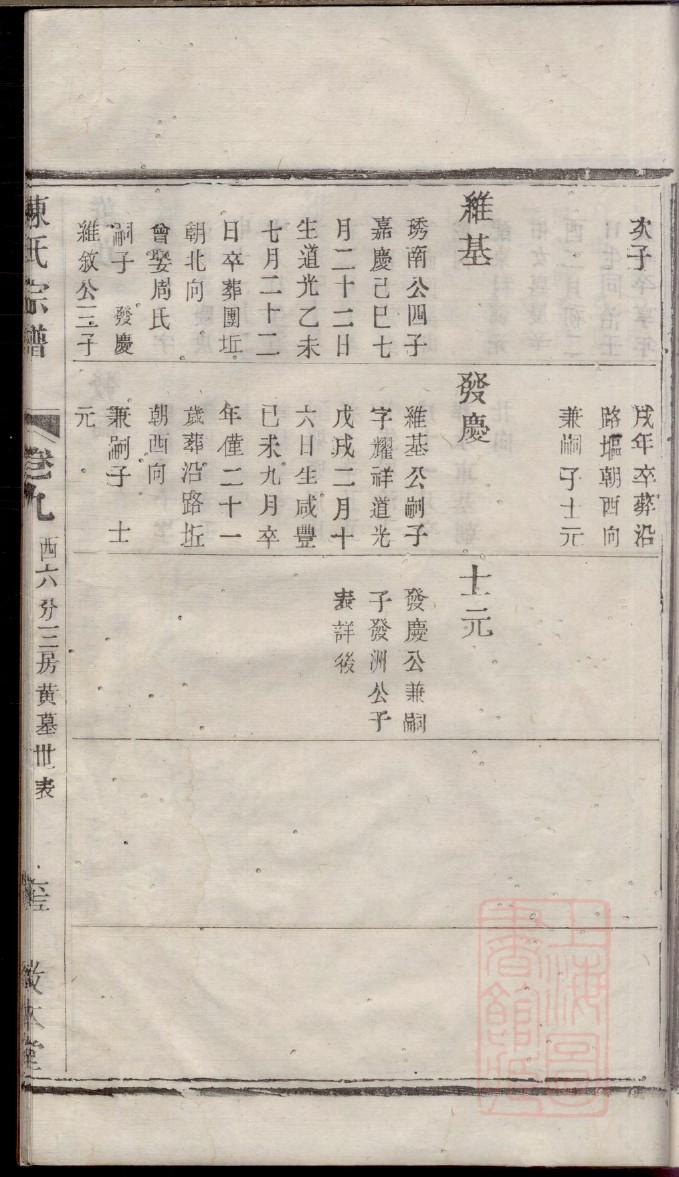 次子
維基
琇南公四子
嘉慶己巳七
月二十二日
生道光乙未
七月二十二
日卒葬團坵
朝北向
會娶周氏
嗣子　發慶
維敘公三子
戌年卒葬沿
路塸朝西向
兼嗣子士元
發慶
維基公嗣子
字耀祥道光
戊戌二月十
六日生咸豐
己未九月卒
年僅二十一
歲葬沿路坵
朝西向
兼嗣子　士
元
士元
發慶公兼嗣
子發洲公子
表詳後
陳氏宗譜
卷九
西六分三房黃墓世表
敘本堂
上海圖書館藏